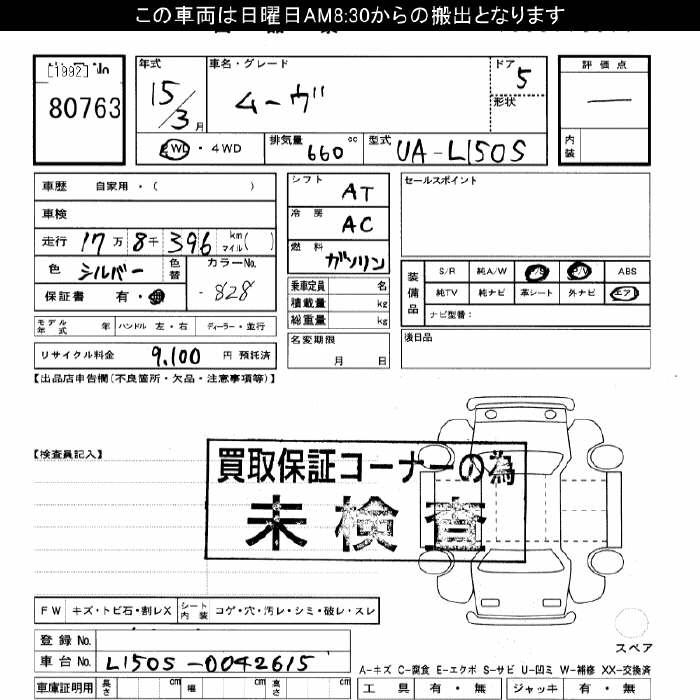 この車両は日曜日AM8:30からの搬出となります
[1992]
80763
年式
15/3月
車名・グレード
ムーヴ
ドア
5
形状
評価点
—
内装
2WD・4WD
排気量
660 cc
型式
UA-L150S
車歴 自家用・( )
車検
走行 17万8千396 km マイル( )
色 シルバー 色替 カラーNo. -828
保証書 有・無
モデル年式 年 ハンドル 左・右 ディーラー・並行
リサイクル料金 9,100 円 預託済
シフト AT
冷房 AC
燃料 ガソリン
乗車定員 名
積載量 kg
総重量 kg
名変期限
月 日
セールスポイント
装備品
S/R 純A/W P/S P/W ABS
純TV 純ナビ 革シート 外ナビ エアB
ナビ型番:
後日品
【出品店申告欄(不良箇所・欠品・注意事項等)】
【検査員記入】
買取保証コーナーの為
未検査
FW キズ・トビ石・割レX シート内装 コゲ・穴・汚レ・シミ・破レ・スレ
登録No.
車台No. L150S-0042615
スペア
A-キズ C-腐食 E-エクボ S-サビ U-凹ミ W-補修 XX-交換済
車庫証明用 長さ cm 幅 cm 高さ cm
工具 有・無 ジャッキ 有・無